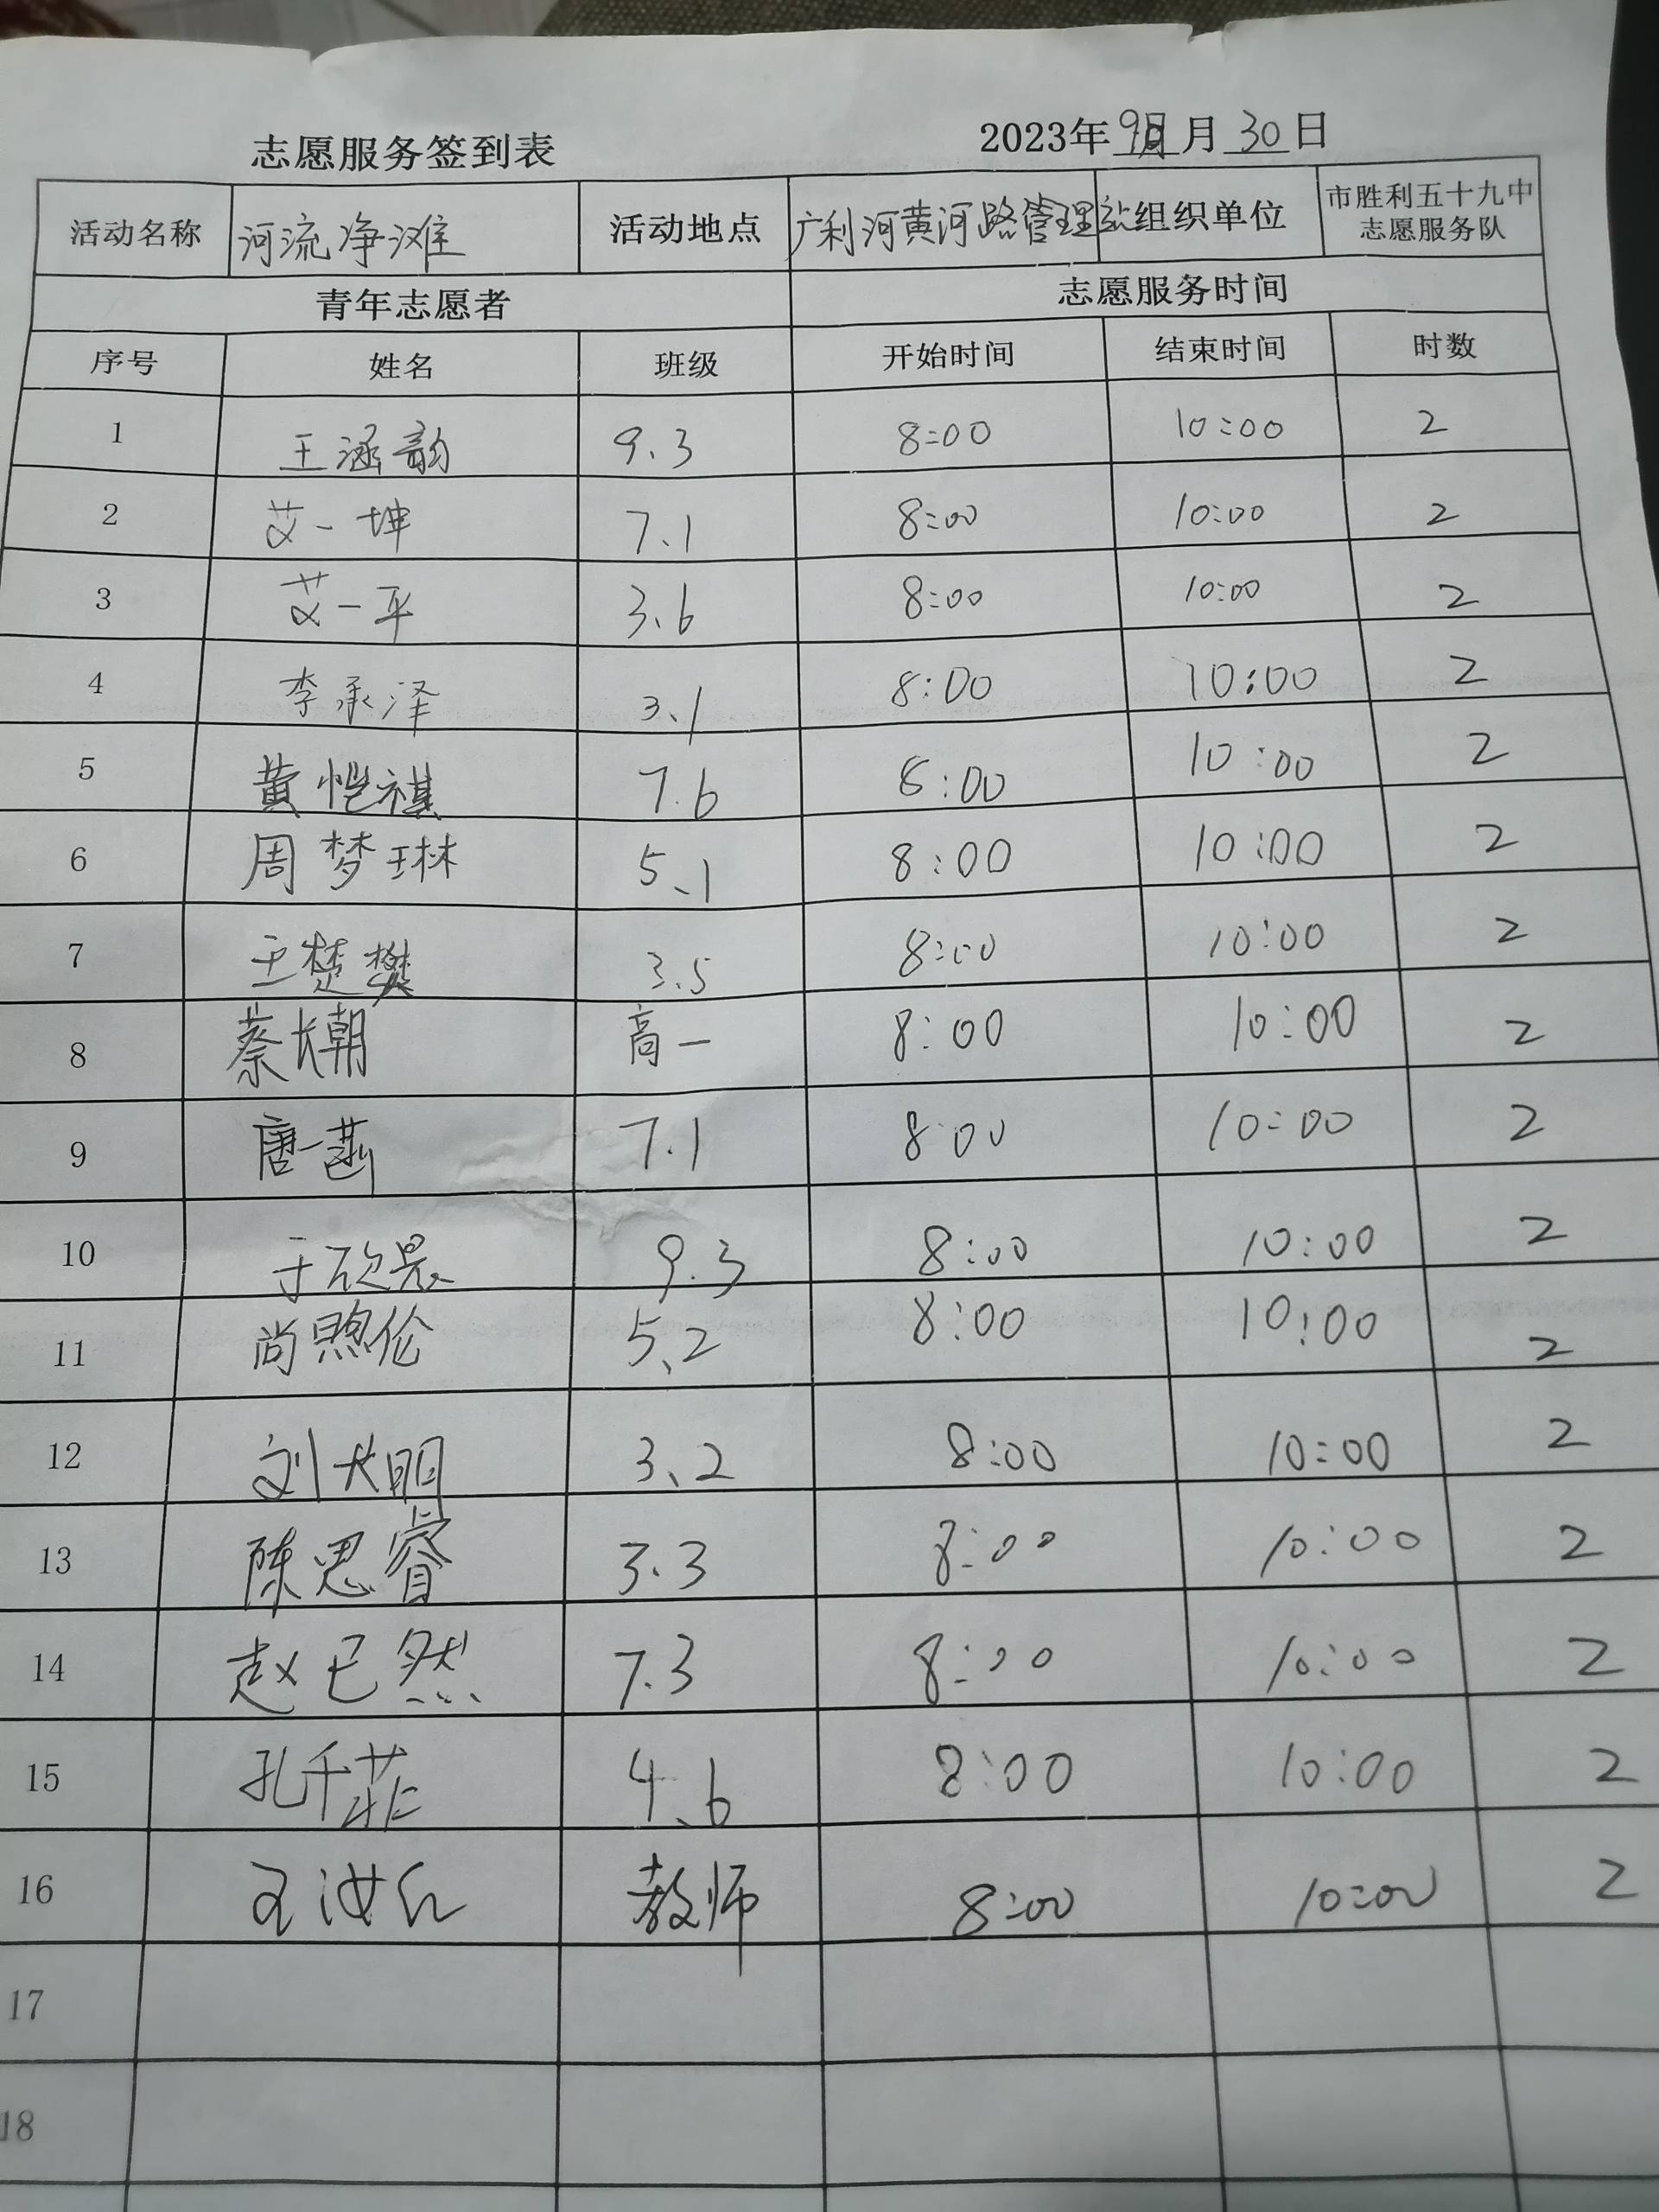 志愿服务签到表 2023年9月月30日
活动名称 河流净滩 活动地点 广利河黄河路管理站 组织单位 市胜利五十九中
志愿服务队
青年志愿者 志愿服务时间
序号 姓名 班级 开始时间 结束时间 时数
1 王涵韵 9.3 8:00 10:00 2
2 艾一坤 7.1 8:00 10:00 2
3 艾一平 3.6 8:00 10:00 2
4 李承泽 3.1 8:00 10:00 2
5 黄恺祺 7.6 8:00 10:00 2
6 周梦琳 5、1 8:00 10:00 2
7 王楚樊 3.5 8:00 10:00 2
8 蔡长朝 高一 8:00 10:00 2
9 唐一菡 7.1 8:00 10:00 2
10 于欣 9.3 8:00 10:00 2
11 尚煦伦 5、2 8:00 10:00 2
12 刘大明 3、2 8:00 10:00 2
13 陈思睿 3.3 8:00 10:00 2
14 赵已然 7.3 8:00 10:00 2
15 孔千菲 4、6 8:00 10:00 2
16 王汝 教师 8:00 10:00 2
17
18